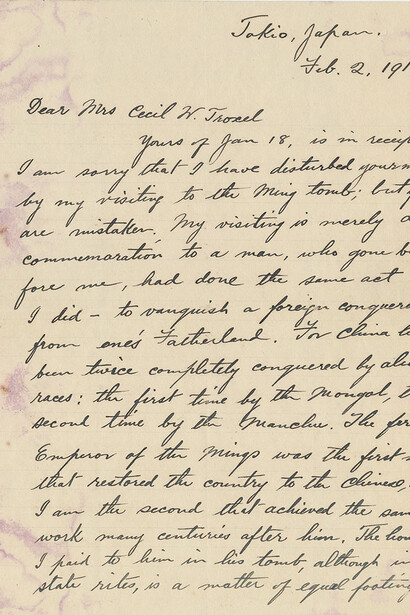 Tokio, Japan.
Feb. 2, 191
Dear Mrs Cecil W. Troxel
Yours of Jan 18, is in receip
I am sorry that I have disturbed your m
by my visiting to the Ming tomb; but
are mistaken. My visiting is merely a
commemoration to a man, who gone b
fore me, had done the same act
I did – to vanquish a foreign conquero
from one's Fatherland. For China
been twice completely conquered by alie
races: the first time by the Mongol,
second time by the Manchu. The
Emperor of the Mings was the first
that restored the country to the Chinese,
I am the second that achieved the sam
work many centuries after him. The hon
I paid to him in his tomb, although in
state rites, is a matter of equal footing